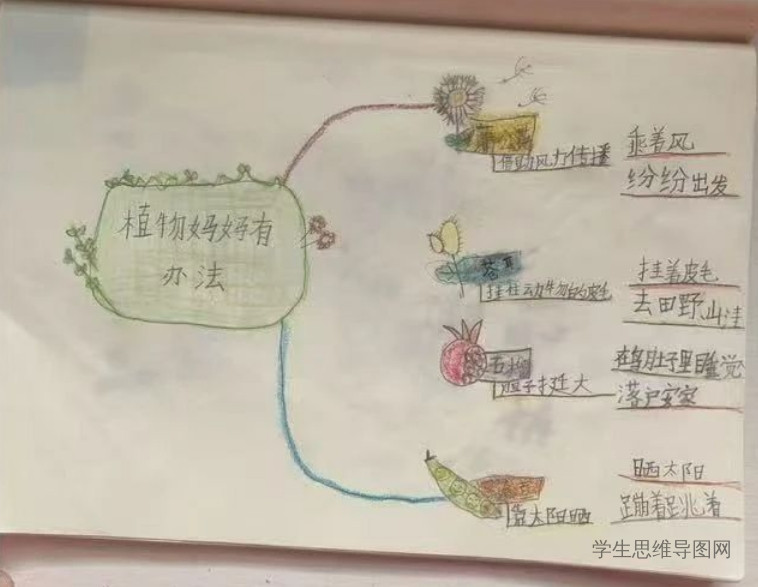 植物妈妈有
办法
蒲公英
借助风力传播
乘着风
纷纷出发
苍耳
挂住动物的皮毛
挂着皮毛
去田野山洼
石榴
肚子挺大
在鸟肚子里睡觉
落户安家
靠太阳晒
晒太阳
蹦着跳着
学生思维导图网